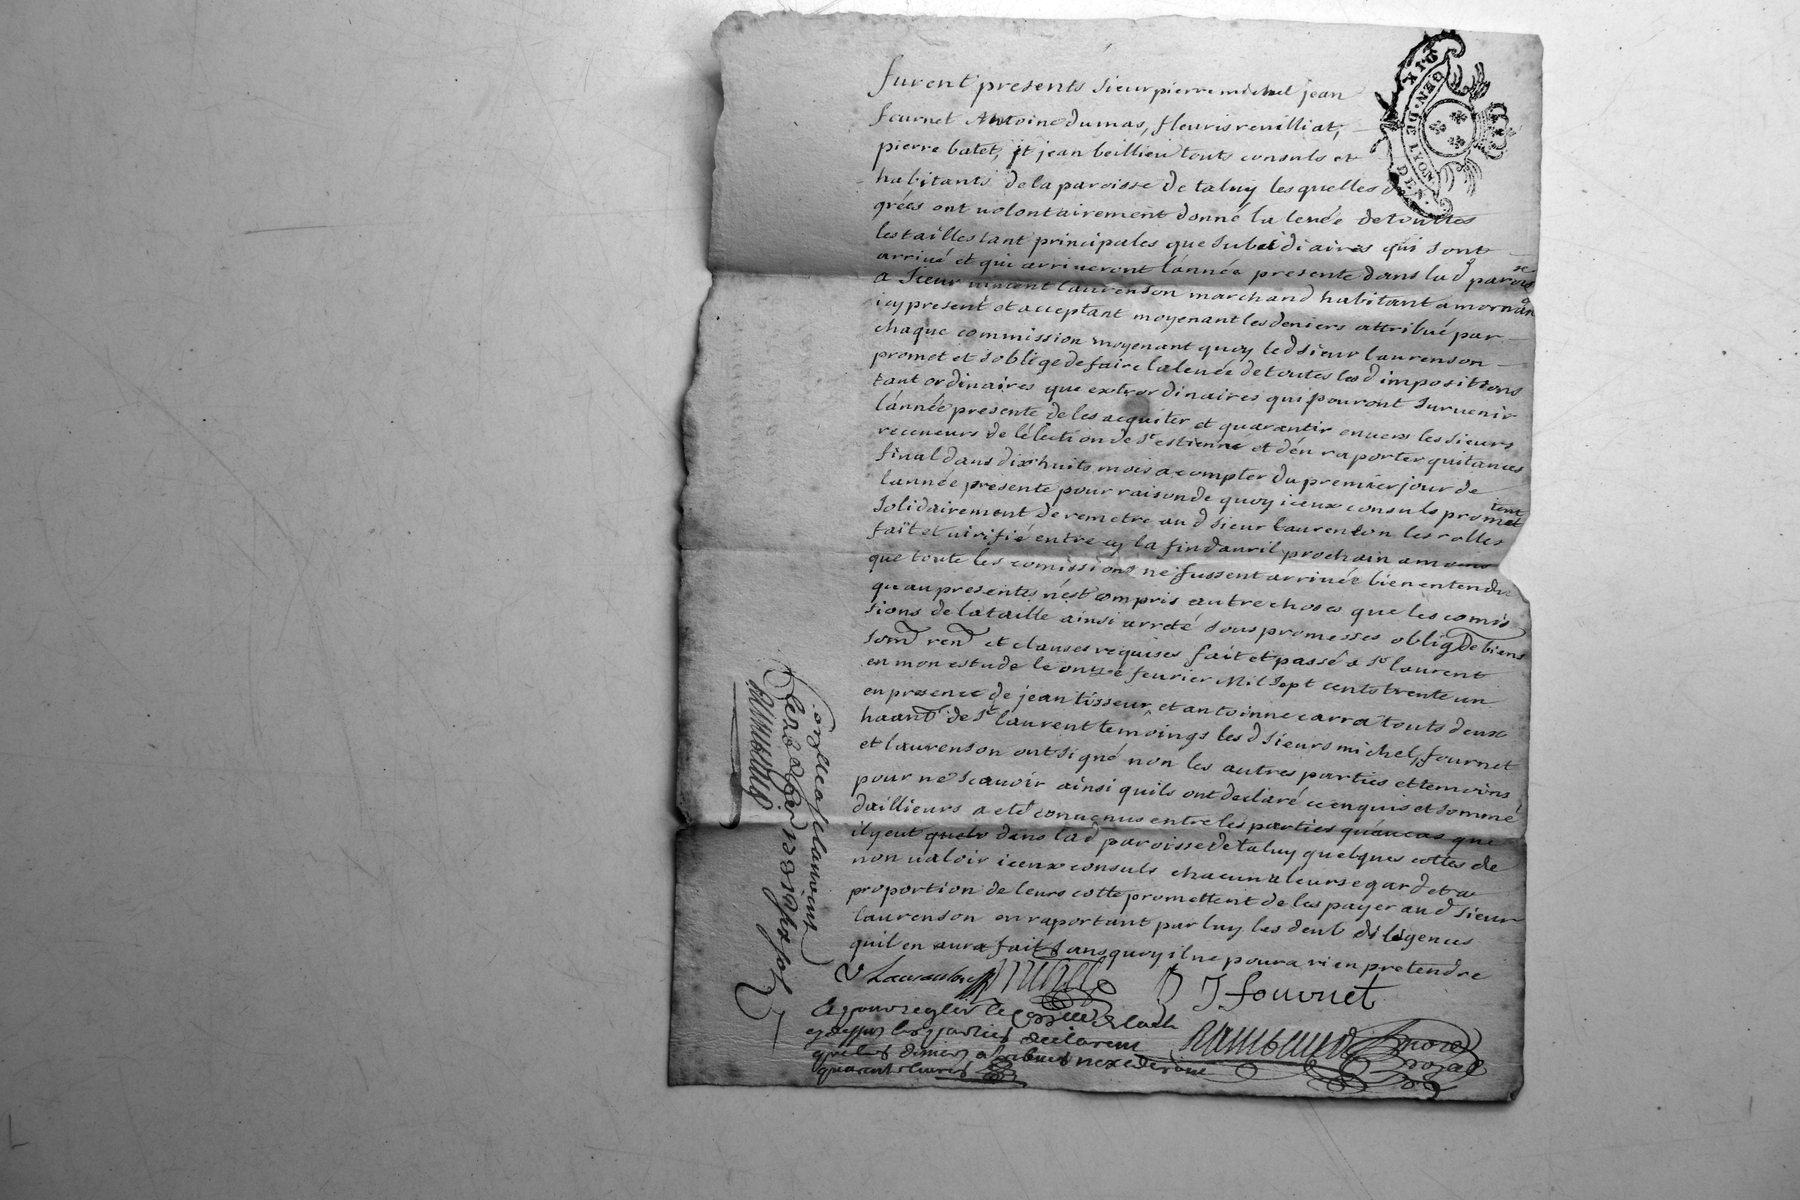 furent presents sieur pierre michel jean
fournet Antoine dumas, fleuris revilliat,
pierre batet, et jean beillieu touts consuls et
habitants de la paroisse de taluy lesquelles de
grées ont volontairement donné la levée de touttes
les tailles tant principales que subsidiaires qui sont
arrivé et qui arriveront l'année presente dans lad parois
se
a Sieur vincent laurenson marchand habitant a mornan
icy present et acceptant moyenant les deniers attribué par
chaque commission moyenant quoy led sieur laurenson
promet et soblige de faire la levée de toutes lesd impositions
tant ordinaires que extrordinaires qui pouront survenir
l'année presente de les acquiter et guarantir envers les sieurs
receveurs de l'élection de st estienne et d'en raporter quitances
final dans dix huits mois a compter du premier jour de
lannée presente pour raison de quoy iceux consuls promet
tent
solidairement de remetre aud sieur laurenson les rolles
fait et virifié entre cy la fin davril prochain a moins
que toute les comissions ne fussent arrivée bien entendu
qu au presentes n'est compris autre choses que les comis
sions de la taille ainsi arreté sous promesses oblig de biens
soms rens et clauses requises fait et passé a st laurent
en mon estude le onze fevrier Mil sept cents trente un
en presence de jean tisseur et antoinne carra touts deux
haant de st laurent temoings lesd sieurs michel, fournet
et laurenson ont signé non les autres parties et temoins
pour ne scavoir ainsi quils ont declaré ce enquis et sommé
dailleurs a eté convenus entre les parties qu'aucas que
il y eut quelv dans lad paroisse de taluy quelques cottes de
non valoir iceux consuls chacun a leurs egard et a
proportion de leurs cotte promettent de les payer aud sieur
laurenson en raportant par luy les deub diligences
quil en aura fait sans quoy il ne poura rien pretendre
V Laurenson michel J fournet
et pour regler le
cy dessus les parties declarent
que les deniers atribues nexederont
quarente livres
Rambaud No.re royal
GEN. DE LYON